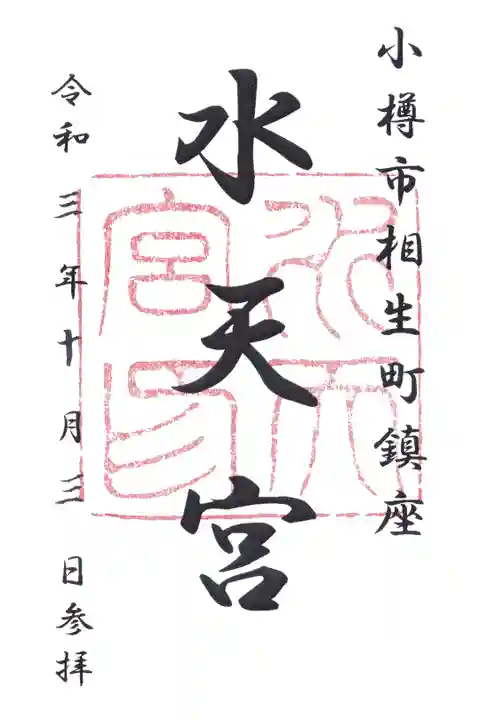 小樽市相生町鎮座
水天宮
令和三年十月三日参拝